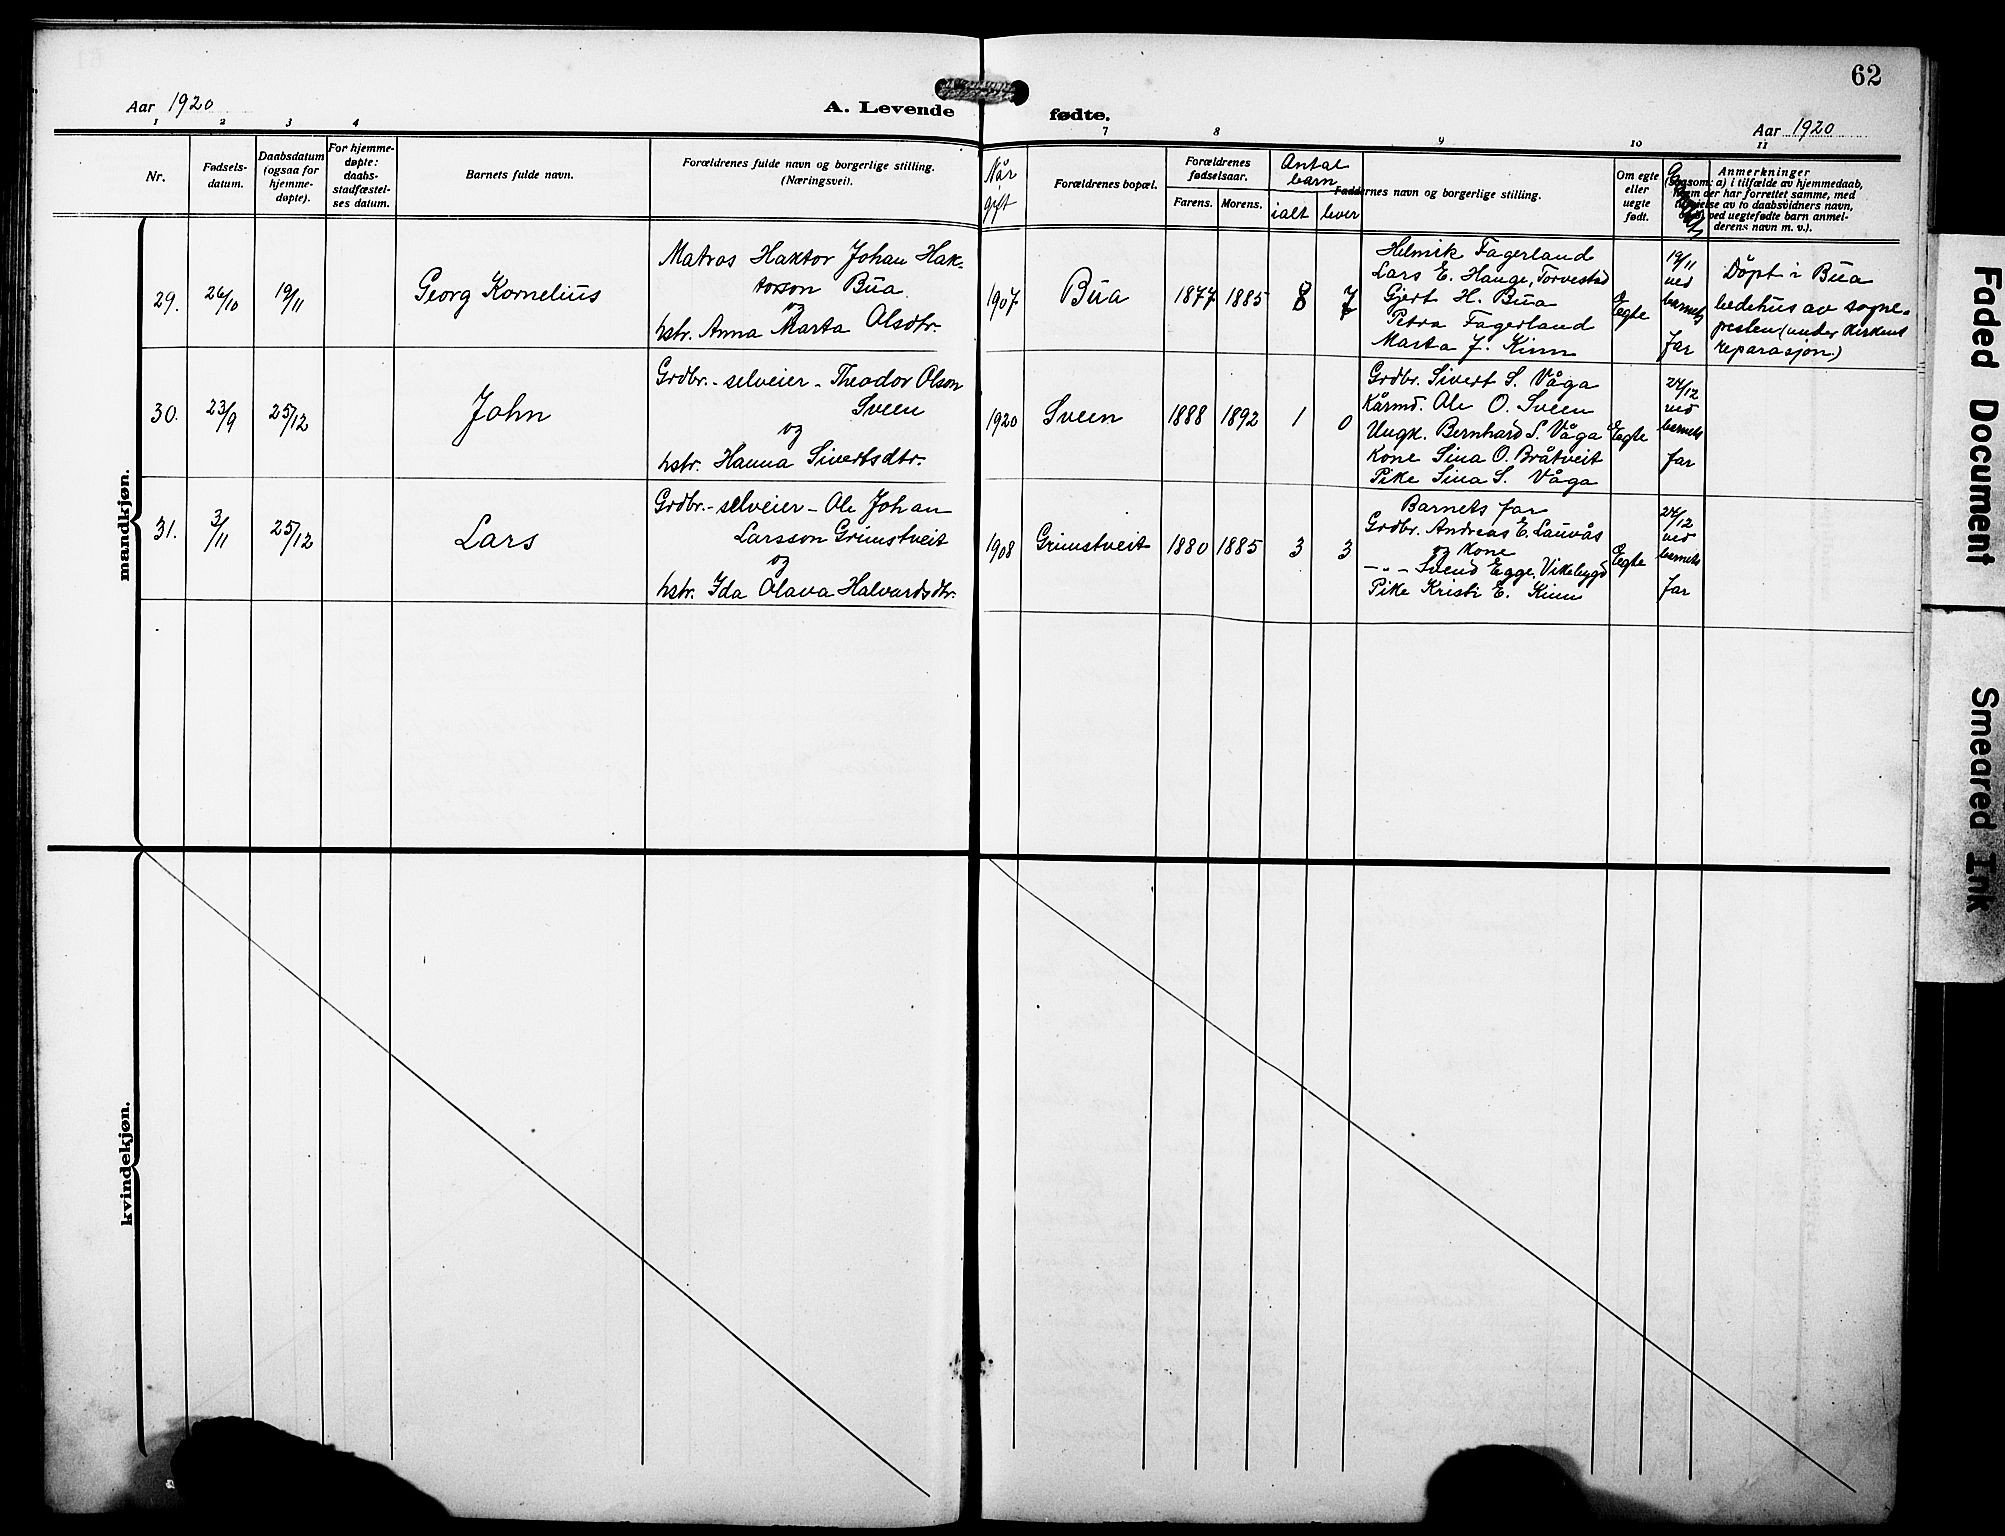 62
Aar 1920
A. Levende fødte.
Aar 1920
1 2 3 4 7 8 9 10 11
Nr.
Fødsels-
datum.
Daabsdatum
(ogsaa for
hjemme-
døpte).
For hjemme-
døpte:
daabs-
stadfæstel-
ses datum.
Barnets fulde navn.
Forældrenes fulde navn og borgerlige stilling.
(Næringsvei).
Når
gift
Forældrenes bopæl.
Forældrenes
fødselsaar.
Farens. Morens.
Antal
barn
ialt lever
Faddernes navn og borgerlige stilling.
Om egte
eller
uegte
født.
Anmerkninger
(saasom: a) i tilfælde av hjemmedaab,
hvem der har forrettet samme, med
av to daabsvidners navn,
ved uegtefødte barn anmel-
derens navn m. v.).
mandkjøn.
29.
26/10
19/11
Georg Kornelius
Matros Haktor Johan Hak-
torson Bua
og
hstr. Anna Marta Olsdtr.
1907
Bua
1877 1885 8 7
Helmik Fagerland
Lars E. Hauge, Torvestad
Gjert H. Bua
Petra Fagerland
Marta J. Kinn
Egte
19/11
ved
barnets
far
Döpt i Bua
bedehus av sogne-
presten (under kirkens
reparasjon.)
30.
23/9
25/12
John
Grdbr.- selveier - Theodor Olson
Sveen
og
hstr. Hanna Sivertsdtr.
1920
Sveen
1888 1892 1 0
Grdbr. Sivert S. Våga
Kårmd. Ole O. Sveen
Ungk. Bernhard S. Våga
Kone Sina O. Bråtveit
Pike Sina S. Våga
Egte
24/12
ved
barnets
far
31.
3/11
25/12
Lars
Grdbr.- selveier - Ole Johan
Larsson Grimstveit
og
hstr. Ida Olava Halvardsdtr.
1908
Grimstveit
1880 1885 3 3
Barnets far
Grdbr. Andreas E. Lauvås
og kone
-"- Svend Egge, Vikebygd
Pike Kristi E. Kinn
Egte
24/12
ved
barnets
far
kvindekjøn.
Faded Document
Smeared Ink